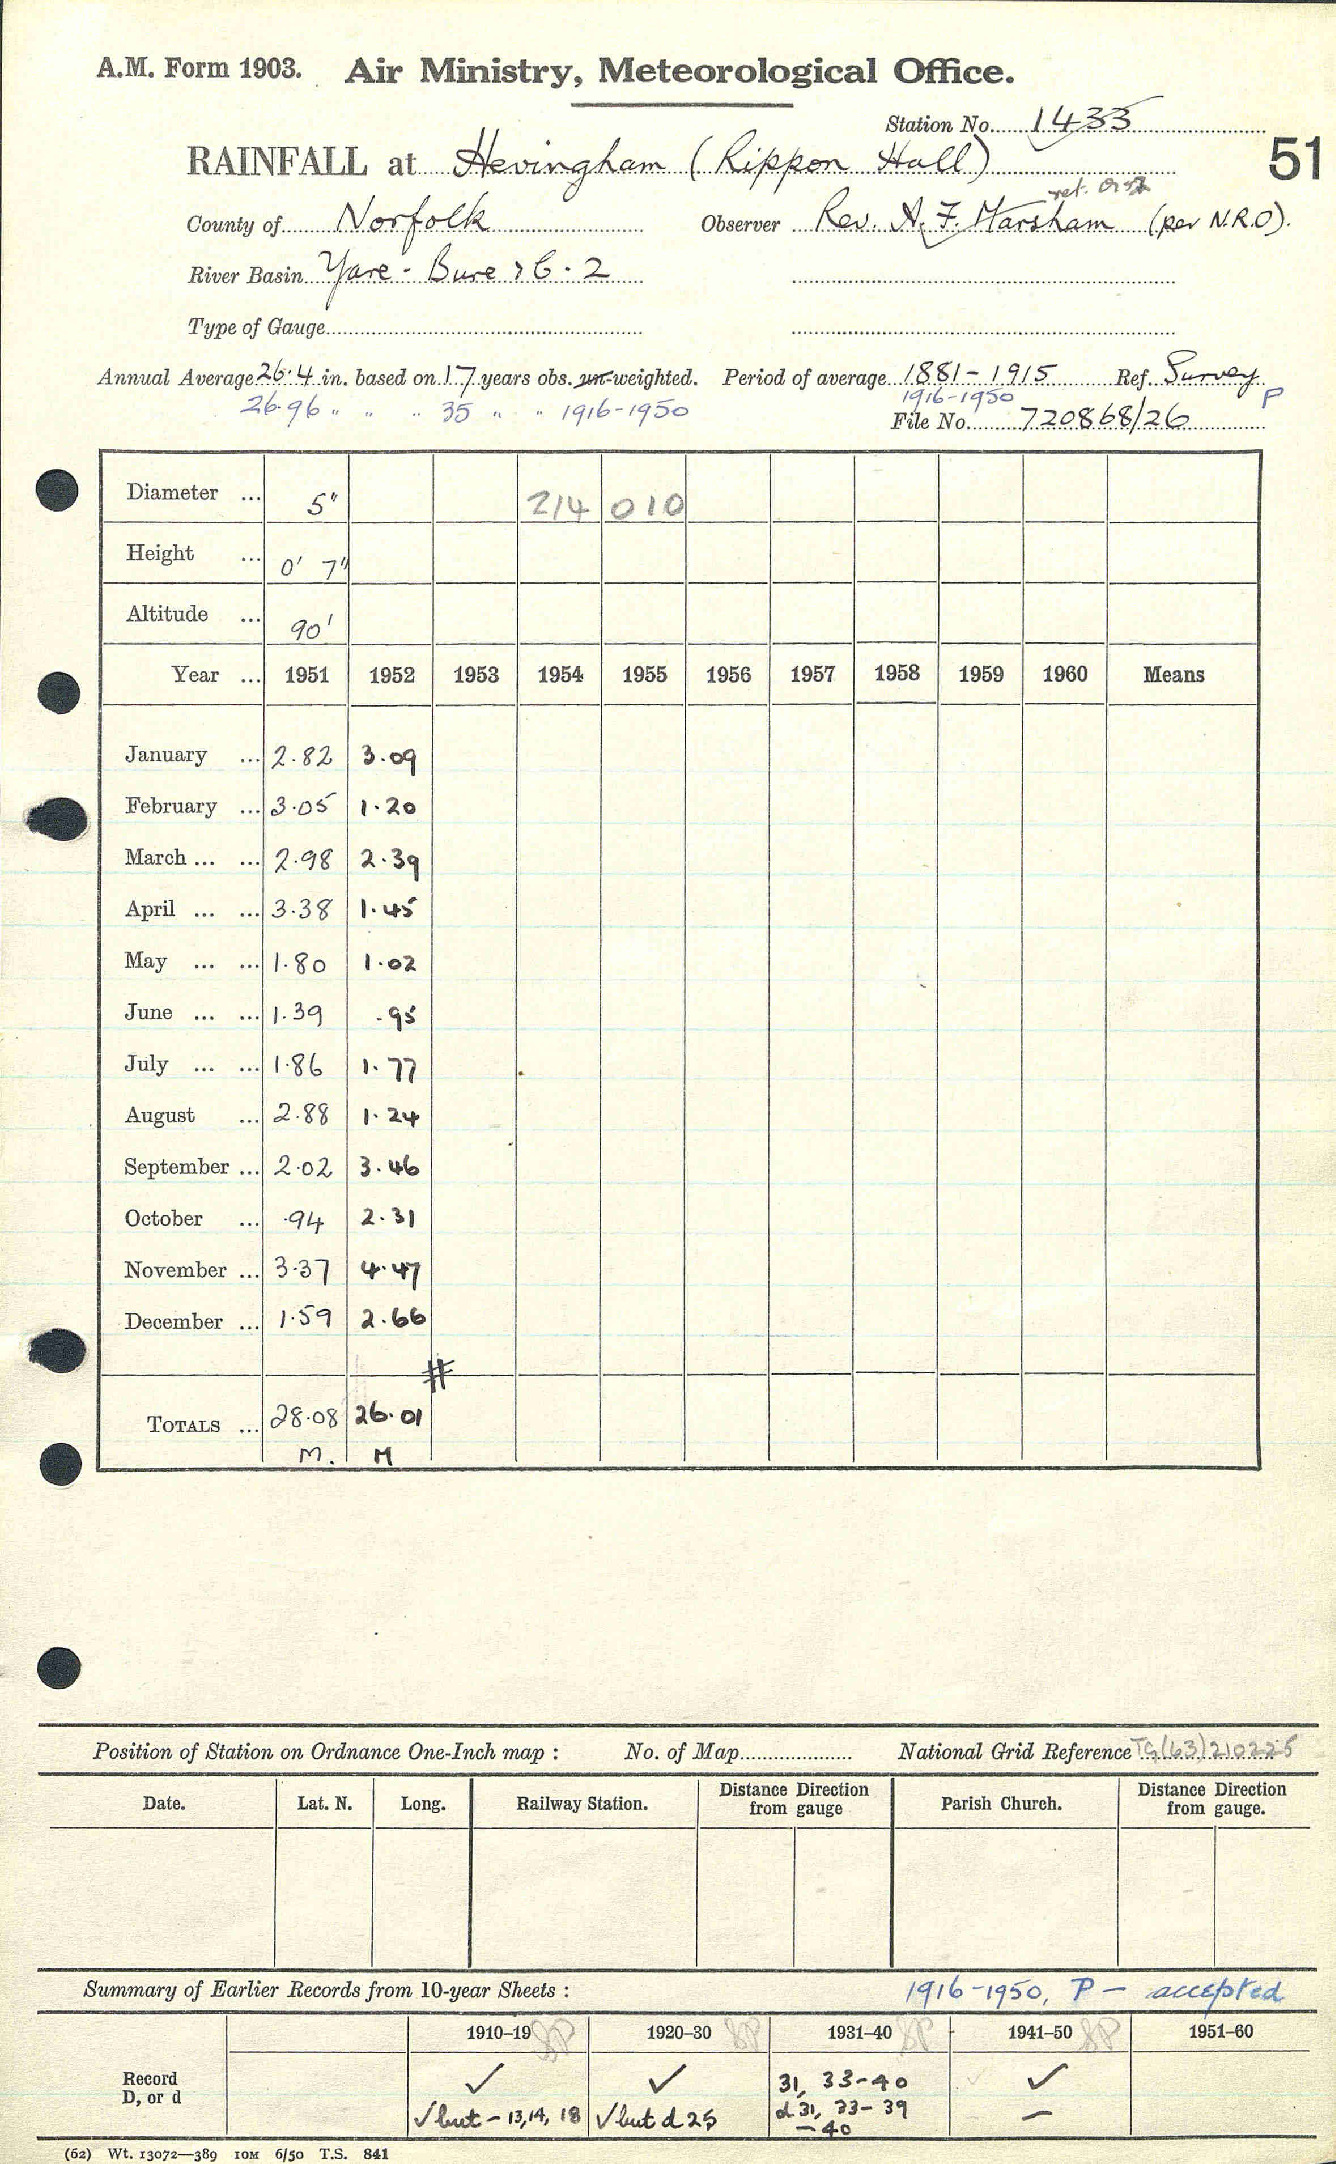 A.M. Form 1903. Air Ministry, Meteorological Office.
Station No. 1433
RAINFALL at Hevingham (Rippon Hall) 51
County of Norfolk Observer Rev. A. F. Marsham (per N.R.O).
River Basin Yare - Bure 76.2
Type of Gauge
Annual Average 26.4 in. based on 17 years obs. un-weighted. Period of average 1881-1915 Ref. Survey P
26.96 " " " 35 " " 1916-1950 1916-1950
File No. 720868/26
Diameter ... 5" 214 010
Height ... 0' 7"
Altitude ... 90'
Year ... 1951 1952 1953 1954 1955 1956 1957 1958 1959 1960 Means
January ... 2.82 3.09
February ... 3.05 1.20
March ... ... 2.98 2.39
April ... ... 3.38 1.45
May ... ... 1.80 1.02
June ... ... 1.39 .95
July ... ... 1.86 1.77
August ... 2.88 1.24
September ... 2.02 3.46
October ... .94 2.31
November ... 3.37 4.47
December ... 1.59 2.66
#
TOTALS ... 28.08 26.01
M. M
Position of Station on Ordnance One-Inch map : No. of Map National Grid Reference TG(63)210225
Date. Lat. N. Long. Railway Station. Distance Direction from gauge Parish Church. Distance Direction from gauge.
Summary of Earlier Records from 10-year Sheets : 1916-1950, P - accepted
1910-19 1920-30 1931-40 1941-50 1951-60
Record ✓ ✓ 31, 33-40 ✓
D, or d ✓ but - 13, 14, 18 ✓ but d 25 d 31, 33-39 -
-40
(62) Wt. 13072—389 10M 6/50 T.S. 841